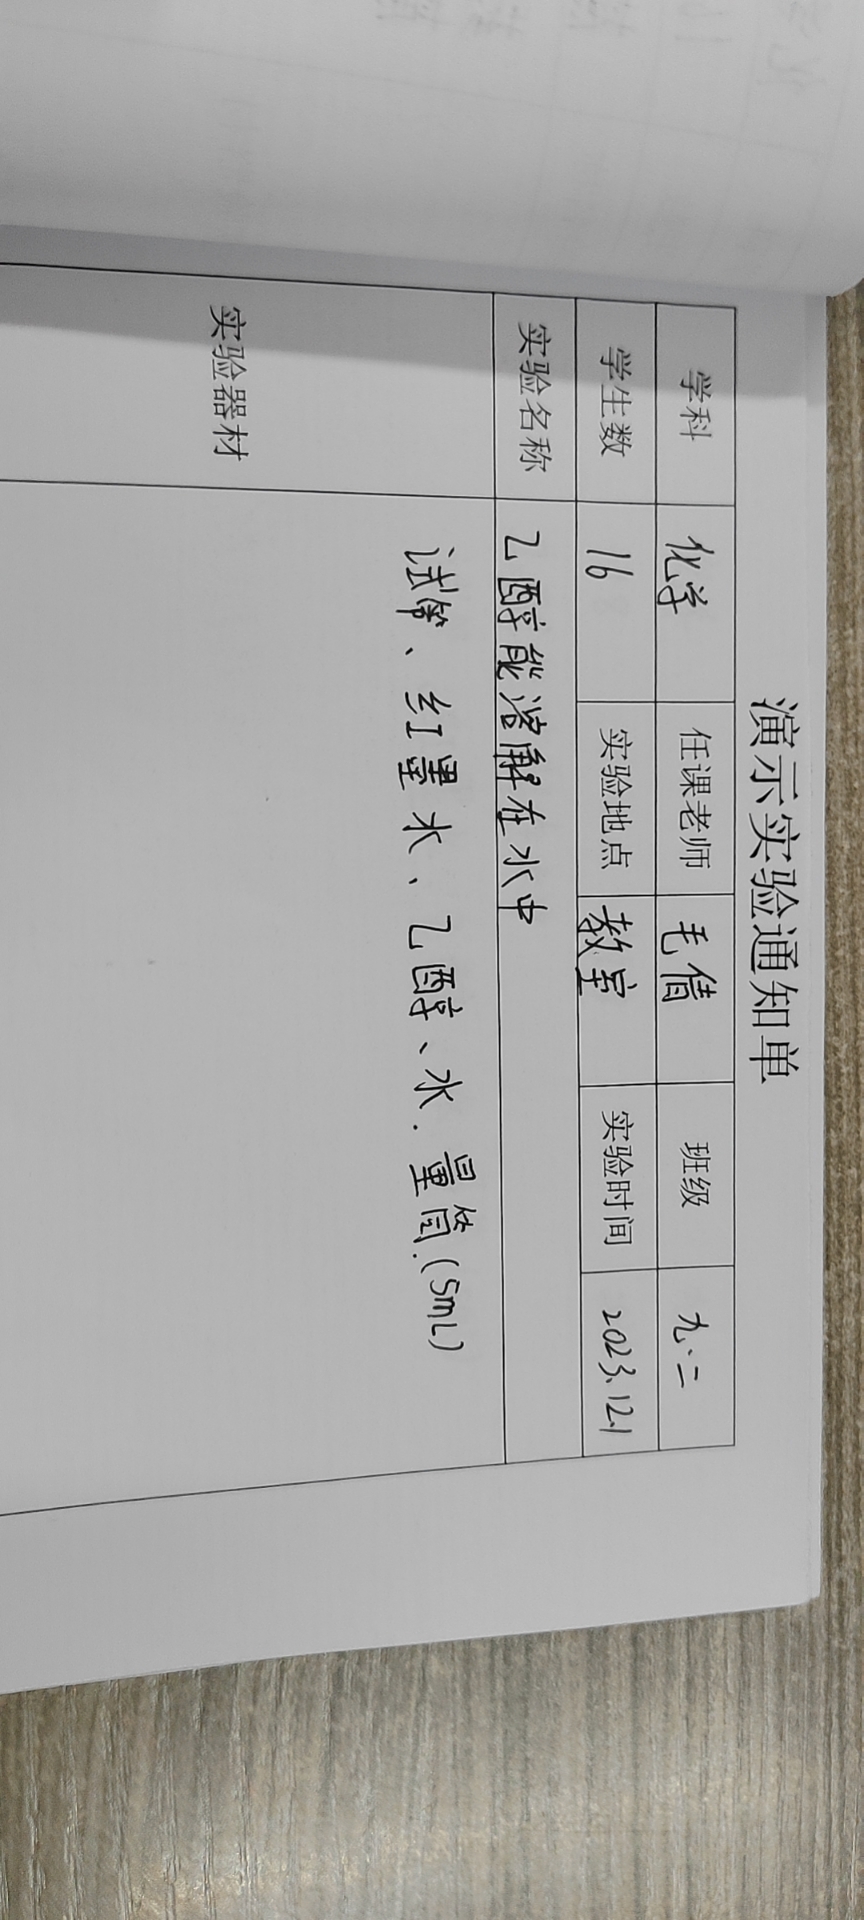 演示实验通知单
学科 化学 任课老师 毛倩 班级 九.二
学生数 16 实验地点 教室 实验时间 2023.12.1
实验名称 乙醇能溶解在水中
实验器材 试管、红墨水、乙醇、水.量筒.(5mL)